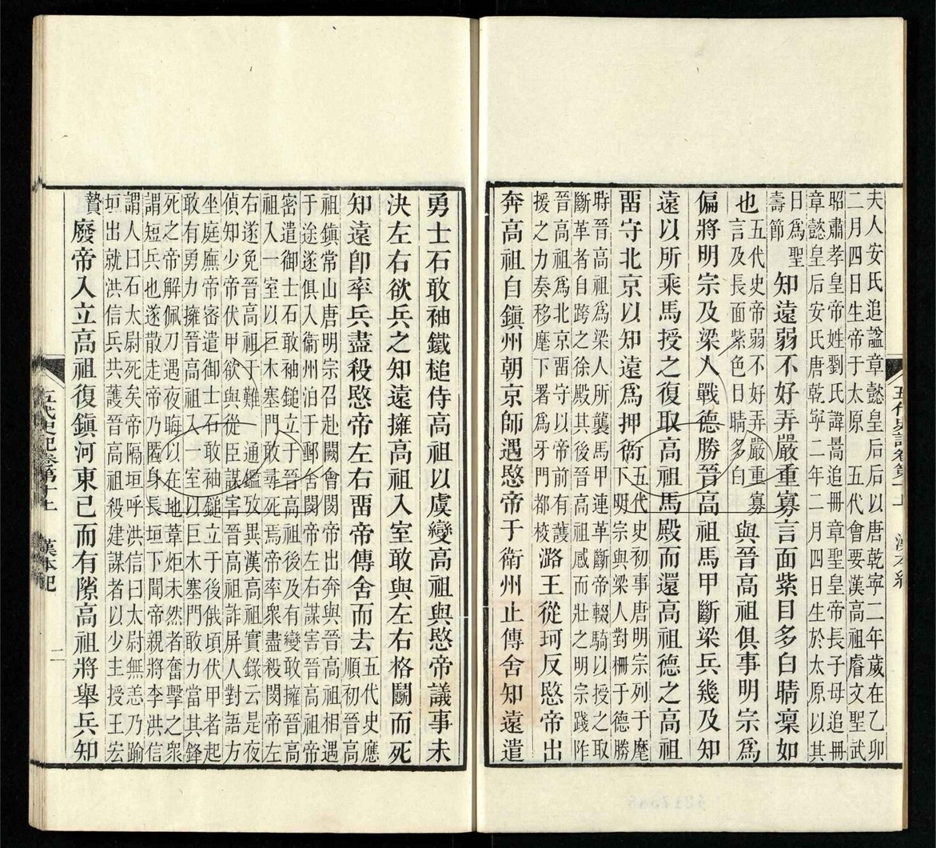 夫人安氏追諡章懿皇后后以唐乾寧二年歲在乙卯
二月四日生帝于太原　五代會要漢高祖睿文聖武
昭肅孝皇帝姓劉氏諱暠追冊章聖皇帝長子母追冊
章懿皇后安氏唐乾寧二年二月四日生於太原以其
日爲聖
壽節
知遠弱不好弄嚴重寡言面紫目多白睛凜如
也
五代史帝弱不好弄嚴重寡
言及長面紫色目睛多白
與晉高祖俱事明宗爲
偏將明宗及梁人戰德勝晉高祖馬甲斷梁兵幾及知
遠以所乘馬授之復取高祖馬殿而還高祖德之高祖
畱守北京以知遠爲押衙
五代史初事唐明宗列于麾
下明宗與梁人對柵于德勝
時晉高祖爲梁人所襲馬甲連革斷帝輟騎以授之取
斷革者自跨之徐殿其後晉高祖感而壯之明宗踐阼
晉高祖爲北京畱守以帝前有護
援之力奏移麾下署爲牙門都校
潞王從珂反愍帝出
奔高祖自鎭州朝京師遇愍帝于衞州止傳舍知遠遣
五代史記卷第十上　漢本紀
勇士石敢袖鐵槌侍高祖以虞變高祖與愍帝議事未
決左右欲兵之知遠擁高祖入室敢與左右格鬭而死
知遠卽率兵盡殺愍帝左右畱帝傳舍而去
五代史應
順初晉高
祖鎭常山唐明宗召赴闕會閔帝出奔與晉高祖相遇
于途遂俱入衞州泊于郵舍閔帝左右謀害晉高祖帝
密遣御士石敢袖鎚立于晉高祖後及有變敢擁晉高
祖入一室以巨木塞門敢尋死焉帝率衆盡殺閔帝左
右遂免晉高祖于難　通鑑攷異漢高祖實錄云是夜
偵知少帝伏甲欲與從臣謀害晉高祖詐屏人對語方
坐庭廡帝密遣御士石敢袖鎚立于後俄頃伏甲者起
敢有勇力擁晉高祖入一室以巨木塞門敢力當其鋒
死之帝解佩刀遇夜晦以在地葦炬未然者奮擊之衆
謂短兵也遂散走帝乃匿身長垣下聞帝親將李洪信
謂人曰石太尉死矣帝隔垣呼洪信曰太尉無恙乃踰
垣出就洪信兵共護晉高祖殺建謀者以少主授王宏
贄
廢帝入立高祖復鎭河東已而有隙高祖將舉兵知
五代史記卷第十上　漢本紀　二